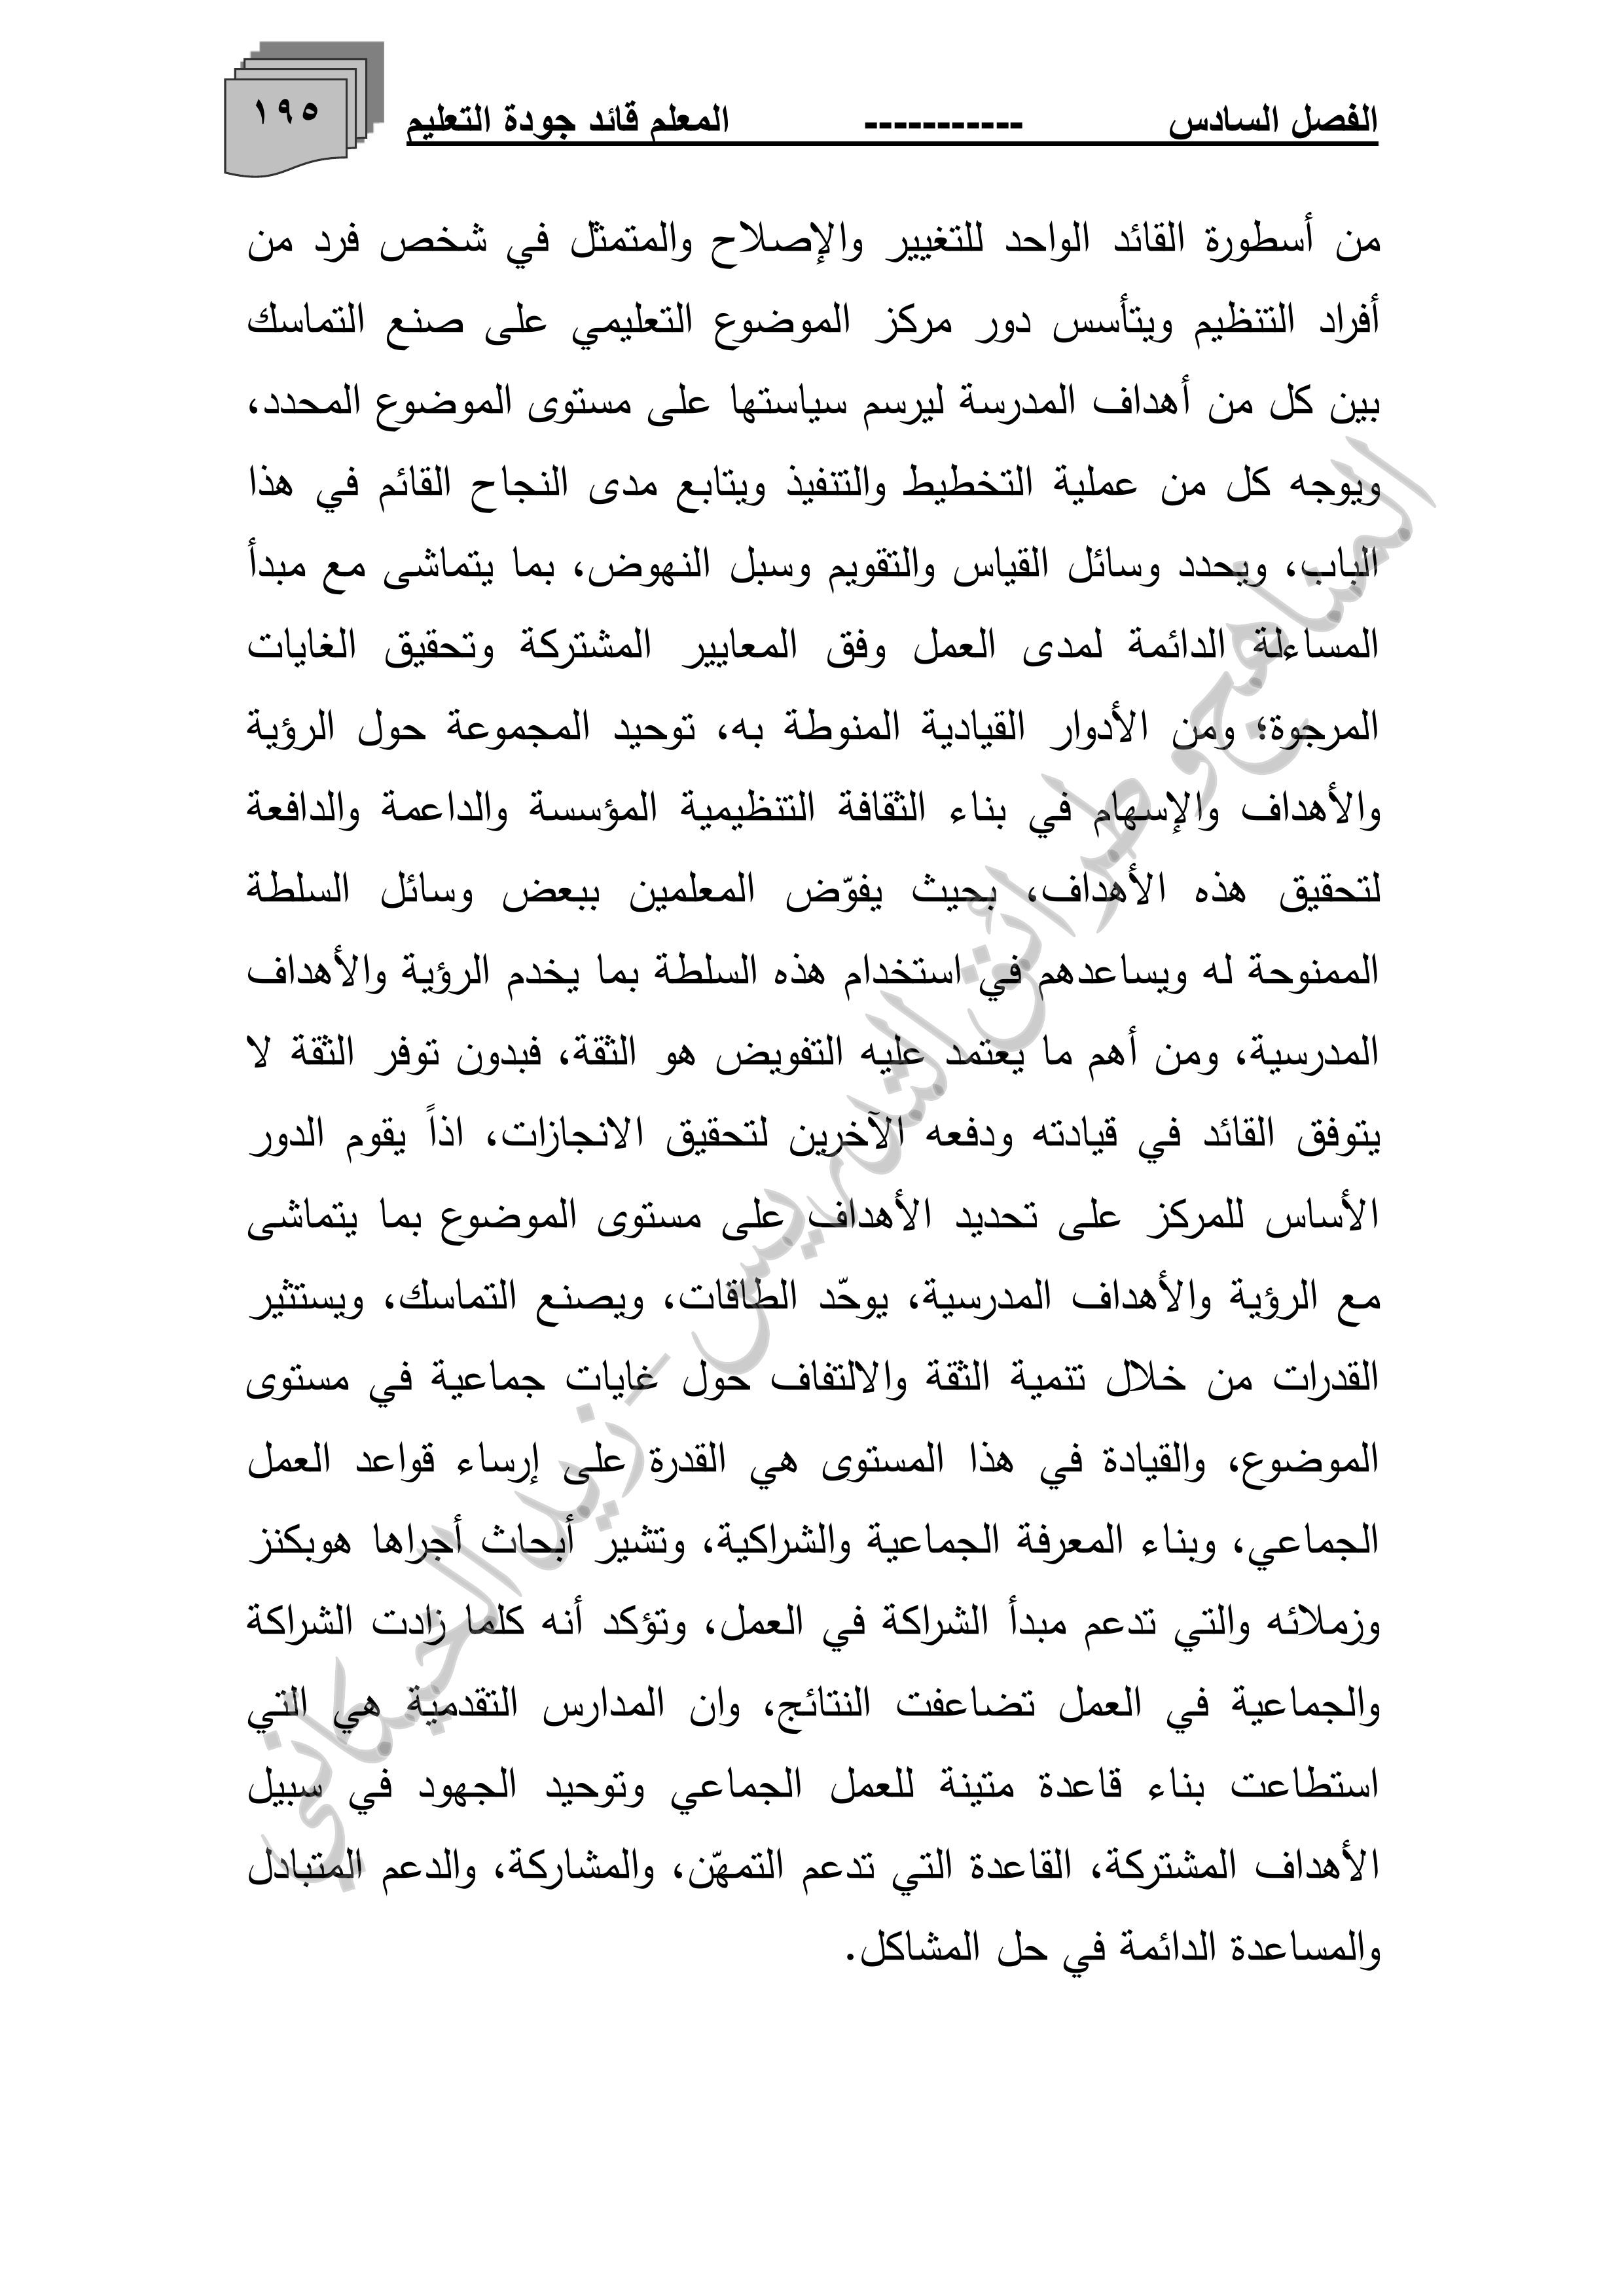 الفصل السادس ----------- المعلم قائد جودة التعليم
١٩٥
من أسطورة القائد الواحد للتغيير والإصلاح والمتمثل في شخص فرد من
أفراد التنظيم ويتأسس دور مركز الموضوع التعليمي على صنع التماسك
بين كل من أهداف المدرسة ليرسم سياستها على مستوى الموضوع المحدد،
ويوجه كل من عملية التخطيط والتنفيذ ويتابع مدى النجاح القائم في هذا
الباب، ويحدد وسائل القياس والتقويم وسبل النهوض، بما يتماشى مع مبدأ
المساءلة الدائمة لمدى العمل وفق المعايير المشتركة وتحقيق الغايات
المرجوة؛ ومن الأدوار القيادية المنوطة به، توحيد المجموعة حول الرؤية
والأهداف والإسهام في بناء الثقافة التنظيمية المؤسسة والداعمة والدافعة
لتحقيق هذه الأهداف، بحيث يفوّض المعلمين ببعض وسائل السلطة
الممنوحة له ويساعدهم في استخدام هذه السلطة بما يخدم الرؤية والأهداف
المدرسية، ومن أهم ما يعتمد عليه التفويض هو الثقة، فبدون توفر الثقة لا
يتوفق القائد في قيادته ودفعه الآخرين لتحقيق الانجازات، اذاً يقوم الدور
الأساس للمركز على تحديد الأهداف على مستوى الموضوع بما يتماشى
مع الرؤية والأهداف المدرسية، يوحّد الطاقات، ويصنع التماسك، ويستثير
القدرات من خلال تنمية الثقة والالتفاف حول غايات جماعية في مستوى
الموضوع، والقيادة في هذا المستوى هي القدرة على إرساء قواعد العمل
الجماعي، وبناء المعرفة الجماعية والشراكية، وتشير أبحاث أجراها هوبكنز
وزملائه والتي تدعم مبدأ الشراكة في العمل، وتؤكد أنه كلما زادت الشراكة
والجماعية في العمل تضاعفت النتائج، وان المدارس التقدمية هي التي
استطاعت بناء قاعدة متينة للعمل الجماعي وتوحيد الجهود في سبيل
الأهداف المشتركة، القاعدة التي تدعم التمهّن، والمشاركة، والدعم المتبادل
والمساعدة الدائمة في حل المشاكل.
المناهج وطرائق التدريس - زيد الحيكاني